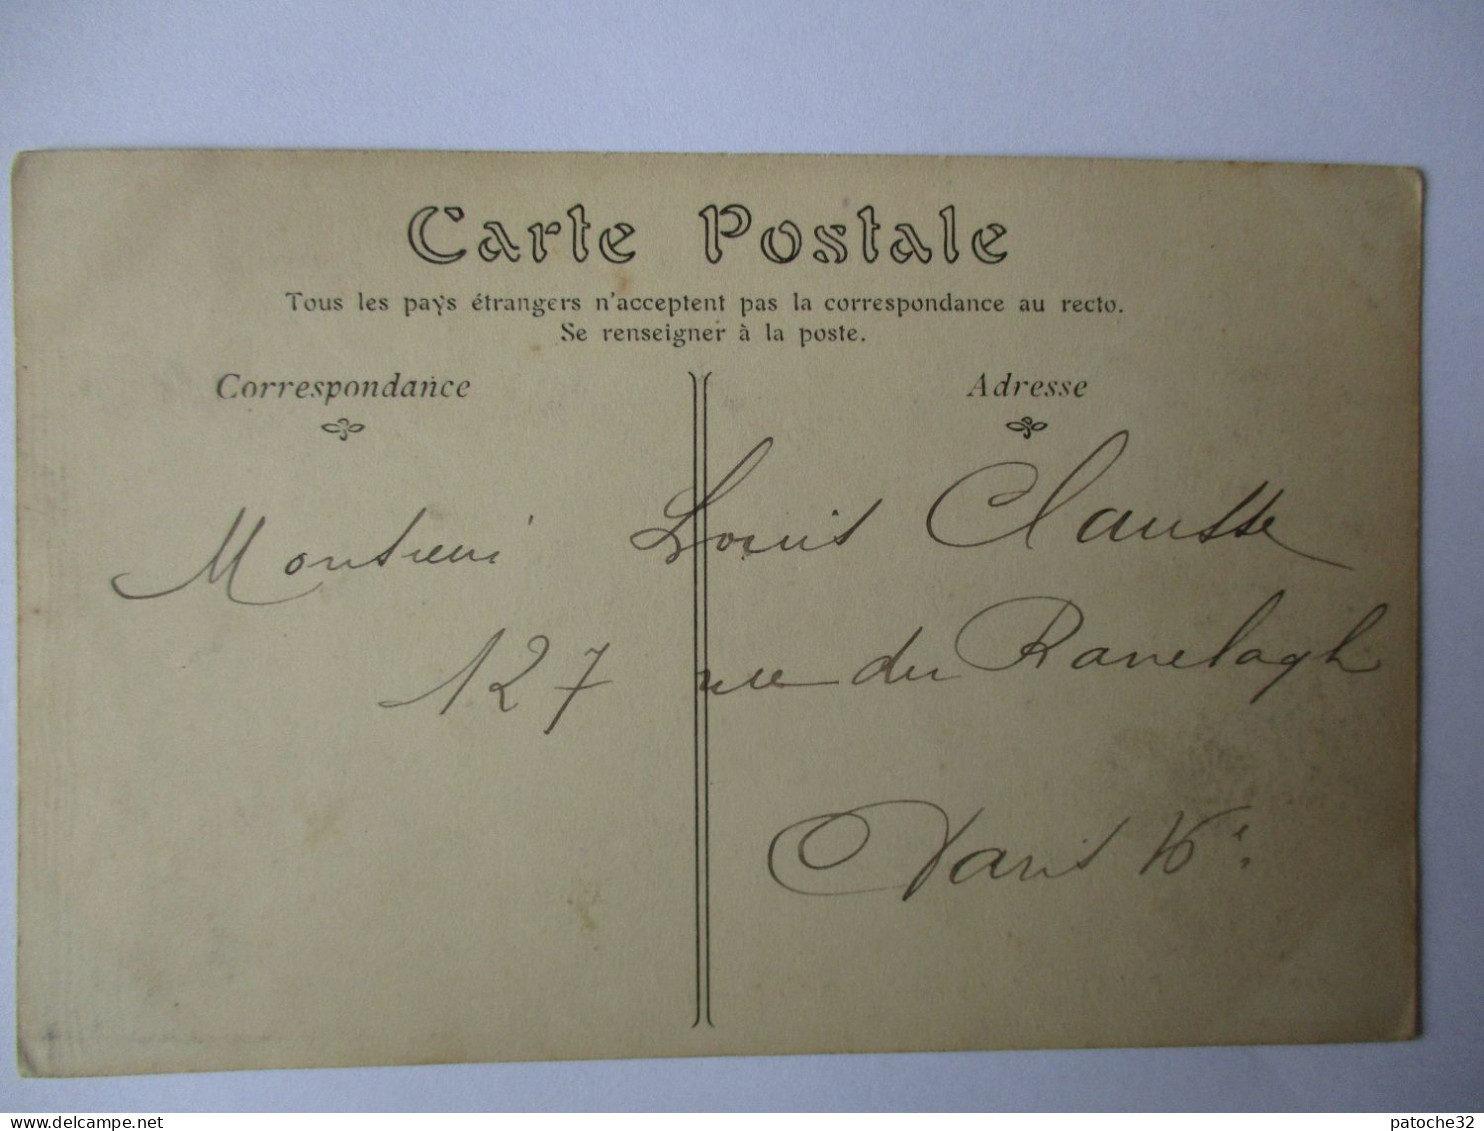 Carte Postale
Tous les pays étrangers n'acceptent pas la correspondance au recto.
Se renseigner à la poste.
Correspondance
Adresse
Monsieur Louis Clausse
127 rue du Ranelagh
Paris
patoche32